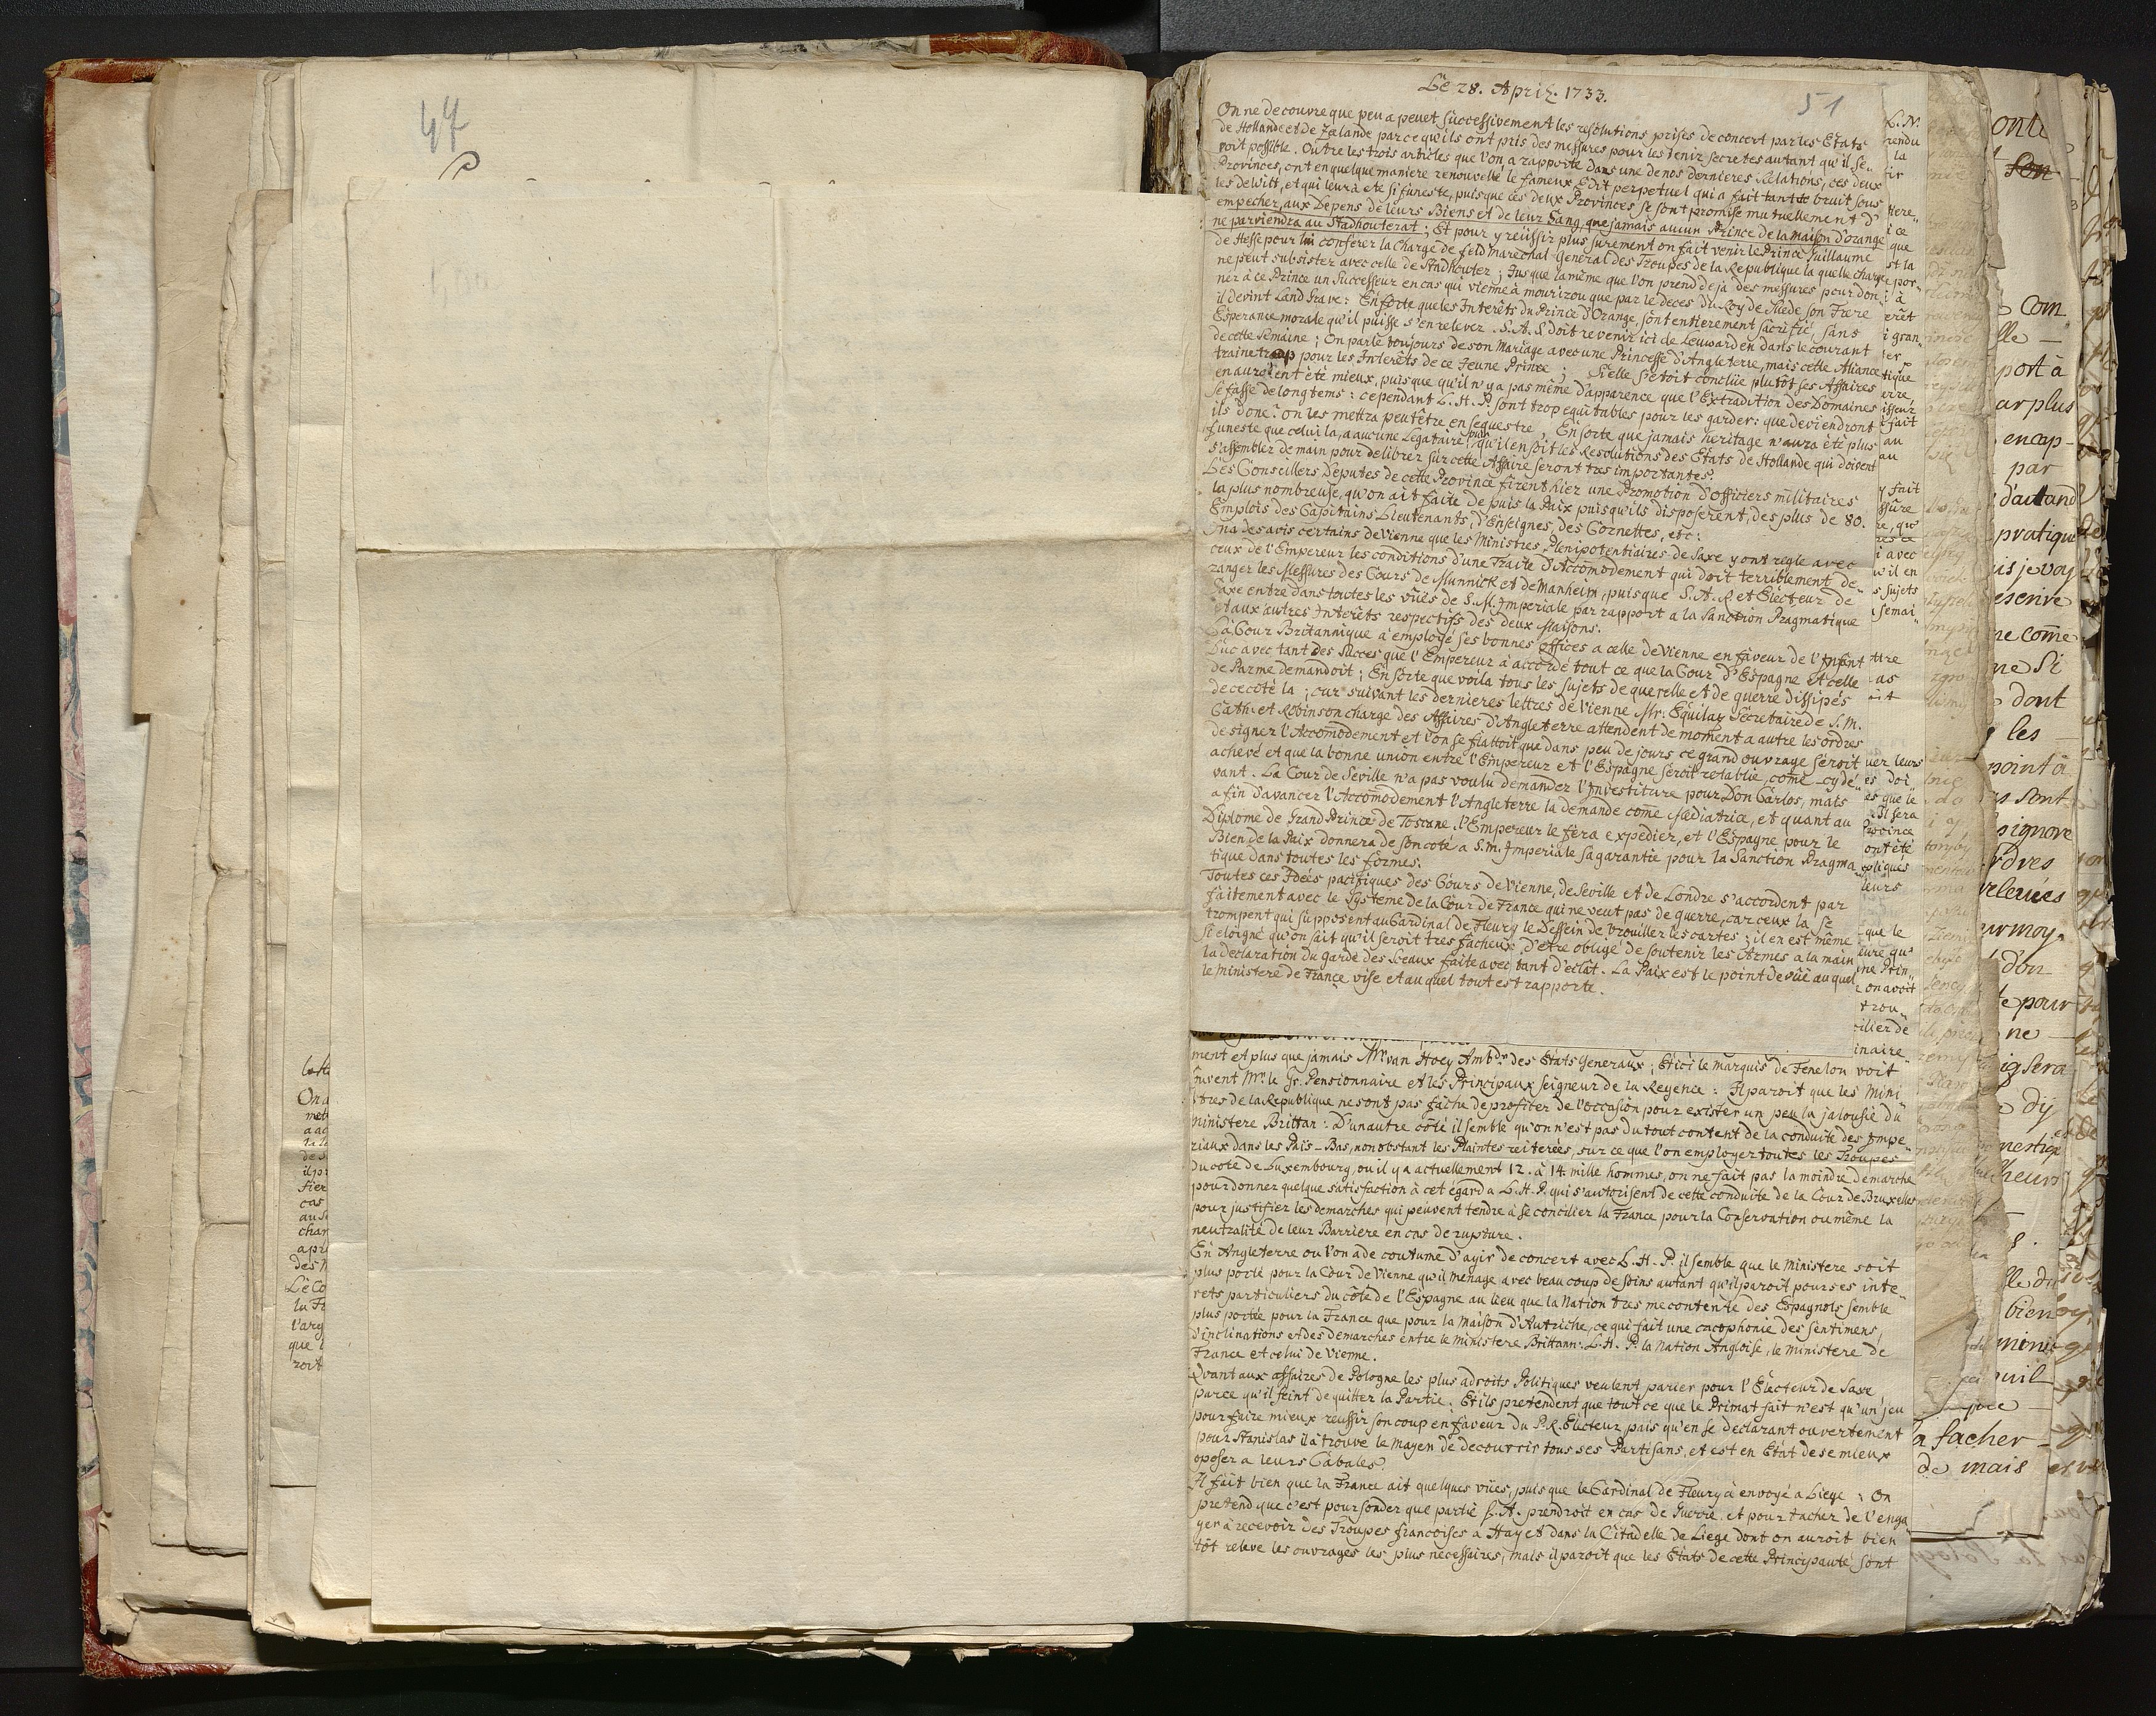 47
51
Le 28. April. 1733.
On ne decouvre que peu a peu et successivement les resolutions prises de concert par les Etats
de Hollande et de Zelande parce qu'ils ont pris des messures pour les tenir secretes autant qu'il se„
roit possible. Outre les trois articles que l'on a rapporte dans une de nos dernieres Relations, ces deux
Provinces, ont en quelque maniere renouvellé le fameux Edit perpetuel qui a fait tant de bruit sous
les de Witt, et qui leur à ete si funeste, puisque ces deux Provinces se sont promise mutuellement d'
empecher, aux Depens de leurs Biens et de leur Sang, que jamais aucun Prince de la Maison d'orange
ne parviendra au Stadhouterat; Et pour y reüssir plus surement on fait venir le Prince Guillaume
de Hesse pour lui conferer la Charge de feld Marechal General des Troupes de la Republique la quelle charge
ne peut subsister avec celle de Stadhouter; Jusque la même que l'on prend deja des messures pour don„
ner à ce Prince un Successeur en cas qui vienne à mourir, ou que par le deces du Roy de Suede son Frere
il devint Land Grave: En sorte que les Interêts du Prince d'Orange, sont entierement sacrifié, sans
Esperance morale qu'il puisse s'en relever. S. A. S. doit revenir ici de Leuwarden dans le courant
de cette Semaine; On parle toujours de son Mariage avec une Princesse d'Angleterre, mais cette Aliance
traine trop pour les Interêts de ce Jeune Prince; Si elle s'etoit conclüe plutôt ses Affaires
en auroient été mieux, puisque qu'il n'y a pas même d'apparence que l'Extradition des Domaines
se fasse de longtems: cependant L. H. P. sont trop equitables pour les garder: que deviendront
ils donc? on les mettra peutêtre en sequestre, En sorte que jamais heritage n'aura été plus
funeste que celui la, a aucune Legataire, qu'il en soit les Resolutions des Etats de Hollande qui doivent
s'assembler demain pour delibrer sur cette Affaire seront tres importantes.
Les Conseillers Deputes de cette Province firent hier une Promotion d'officiers militaires
la plus nombreuse, qu'on ait faite depuis la Paix puisqu'ils disposerent, des plus de 80.
Emplois des Capitains Lieutenants, d'Enseignes, des Cornettes, etc:
On a des avis certains de Vienne que les Ministres Plenipotentiaires de Saxe y ont regle avec
ceux de l'Empereur les conditions d'une Traite d'Accomodement qui doit terriblement de„
ranger les Messures des Cours de Munnick et de Manheim, puisque S. A. R. et Electeur de
Saxe entre dans toutes les vûes de S. M. Imperiale par rapport a la Sanction Pragmatique
et aux autres Interêts respectifs des deux Maisons.
La Cour Britannique à employé ses bonnes offices a celle de Vienne en faveur de l'Infant
Duc avec tant des Succes que l'Empereur à accordé tout ce que la Cour d'Espagne et celle
de Parme demandoit; En sorte que voila tous les sujets de querelle et de guerre dissipés
de ce coté la; car suivant les dernieres lettres de Vienne Mr. Equiluz Secretaire de S. M.
Cath. et Robinson charge des Affaires d'Angleterre attendent de moment a autre les ordres
de signer l'Accomodement et l'on se flattoit que dans peu de jours ce grand ouvrage seroit
achevé et que la bonne union entre l'Empereur et l'Espagne seroit retablie, come cy de„
vant. La Cour de Seville n'a pas voulu demander l'Investiture pour Don Carlos, mais
a fin d'avancer l'Accomodement l'Angleterre la demande come Mediatrice, et quant au
Diplome de Grand Prince de Toscane. l'Empereur le fera expedier, et l'Espagne pour le
Bien de la Paix donnera de son coté a S. M. Imperiale sa garantie pour la Sanction Pragma„
tique dans toutes les formes.
Toutes ces Idées pacifiques des Cours de Vienne, de Seville et de Londre s'accordent par
faitement avec le Systeme de la Cour de France qui ne veut pas de guerre, car ceux la se
trompent qui supposent au Cardinal de Fleury le Dessein de brouiller les cartes; il en est même
si eloigné qu'on sait qu'il seroit tres facheux d'etre obligé de soutenir les Armes a la main
la declaration du garde des Sceaux faite avec tant d'eclât. La Paix est le point de vûe au quel
le ministere de France vise et au quel tout est rapporte.
ment et plus que jamais Mr. van Hoey Ambdr. des Etats Generaux; Et ici le marquis de Fenelon voit
souvent Mr. le Gr. Pensionnaire et les Principaux Seigneur de la Regence: Il paroit que les Mini
stres de la Republique ne sont pas fache de profiter de l'occasion pour exister un peu la jalousie du
ministere Brittan: D'un autre côté il semble qu'on n'est pas du tout content de la conduite des Impe„
riaux dans les Païs-Bas, non obstant les Plaintes reiterées, sur ce que l'on employer toutes les Troupes
du coté de Luxembourg, ou il y a actuellement 12. à 14. mille hommes, on ne fait pas la moindre demarche
pour donner quelque satisfaction à cet égard a L. H. P. qui s'autorisent de cette conduite de la Cour de Bruxelles
pour justifier les demarches qui peuvent tendre à se concilier la France pour la Conservation ou même la
neutralité de leur Barriere en cas de rupture.
En Angleterre ou l'on a de coutume d'agir de concert avec L. H. P. il semble que le ministere soit
plus porté pour la Cour de Vienne qu'il menage avec beaucoup de soins autant qu'il paroit pour ses inte„
rets particuliers du côté de l'Espagne au lieu que la Nation tres mecontente des Espagnols semble
plus portée pour la France que pour la Maison d'Autriche, ce qui fait une cacophonie des sentimens,
d'inclinations et des demarches entre le ministere Brittann. L. H. P. la Nation Angloise, le ministere de
France et celui de Vienne.
Quant aux affaires de Pologne les plus adroits Politiques veulent parier pour l'Electeur de Saxe,
parce qu'il feint de quitter la Partie; Et ils pretendent que tout ce que le Primat fait n'est qu'un jeu
pour faire mieux reussir son coup en faveur du P. R. Electeur, païs qu'en se declarant ouvertement
pour Stanislas il à trouvé le moyen de decouvrir tous ses Partisans, et est en Etat de se mieux
oposer a leurs Cabales.
Il fait bien que la France ait quelques vûes, puis que le Cardinal de Fleury à envoyé a Liege; On
pretend que c'est pour sonder que partie S. A. prendroit en cas de Guerre, et pour tacher de l'enga„
ger à recevoir des Troupes francoises a Huy et dans la Citadelle de Liege dont on auroit bien
tôt releve les ouvrages les plus necessaires, mais il paroit que les Etats de cette Principauté sont